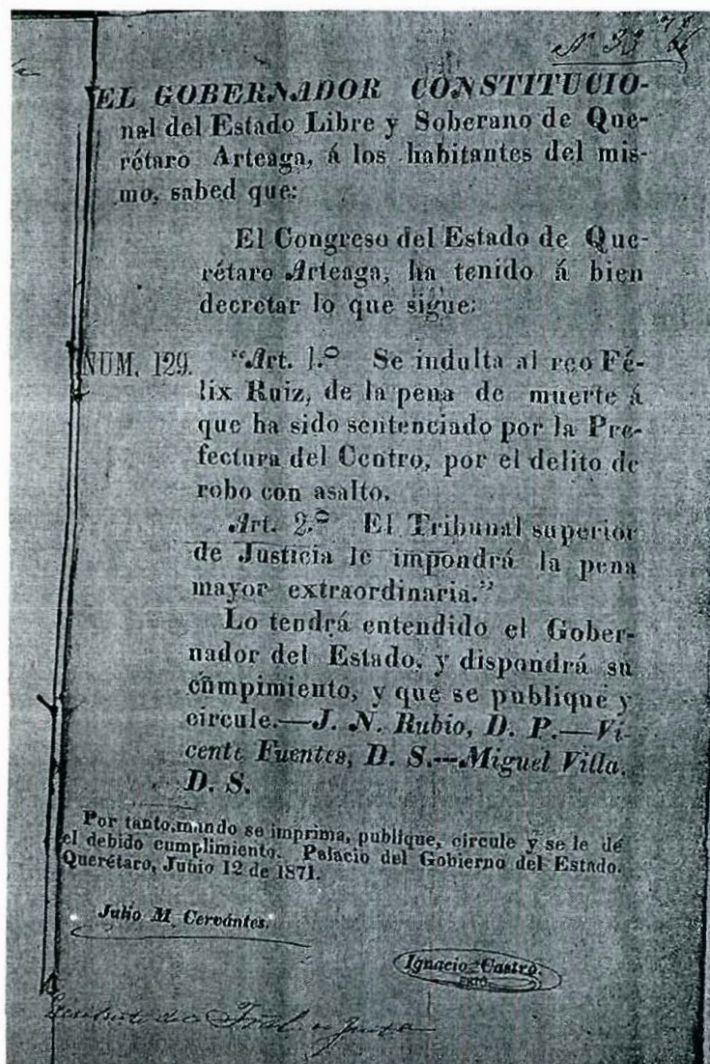 Nº 33
EL GOBERNADOR CONSTITUCIO-
nal del Estado Libre y Soberano de Que-
rétaro Arteaga, á los habitantes del mis-
mo, sabed que:
El Congreso del Estado de Que-
rétaro Arteaga, ha tenido á bien
decretar lo que sigue:
NUM. 129. "Art. 1.º Se indulta al reo Fé-
lix Ruiz, de la pena de muerte á
que ha sido sentenciado por la Pre-
fectura del Centro, por el delito de
robo con asalto.
Art. 2.º El Tribunal superior
de Justicia le impondrá la pena
mayor extraordinaria."
Lo tendrá entendido el Gober-
nador del Estado, y dispondrá su
cumpimiento, y que se publique y
circule.—J. N. Rubio, D. P.—Vi-
cente Fuentes, D. S.—Miguel Villa,
D. S.
Por tanto, mando se imprima, publique, circule y se le dé
el debido cumplimiento. Palacio del Gobierno del Estado.
Querétaro, Junio 12 de 1871.
Julio M. Cervántes.
Ignacio Castro.